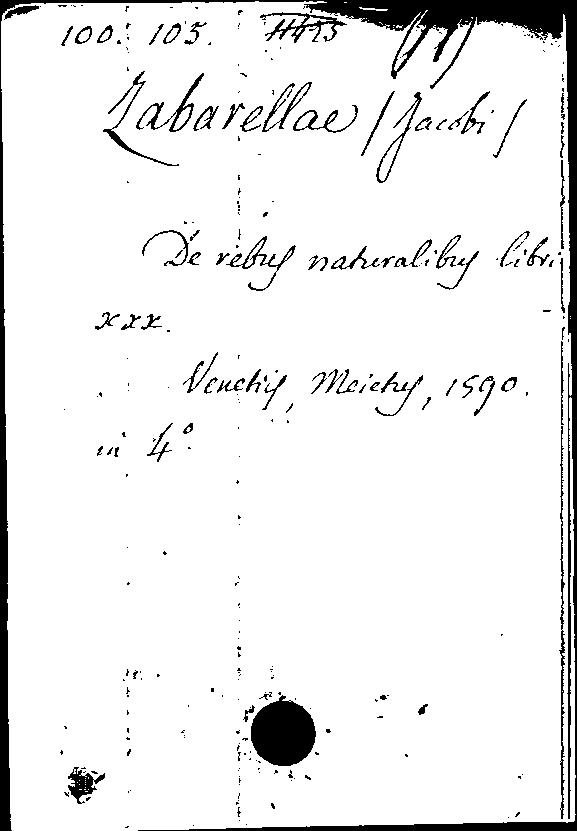 100. 105. 11425
Zabarellae / Jacobi /
De rebus naturalibus libri
xxx.
Venetiis, Meietus, 1590.
in 4°.